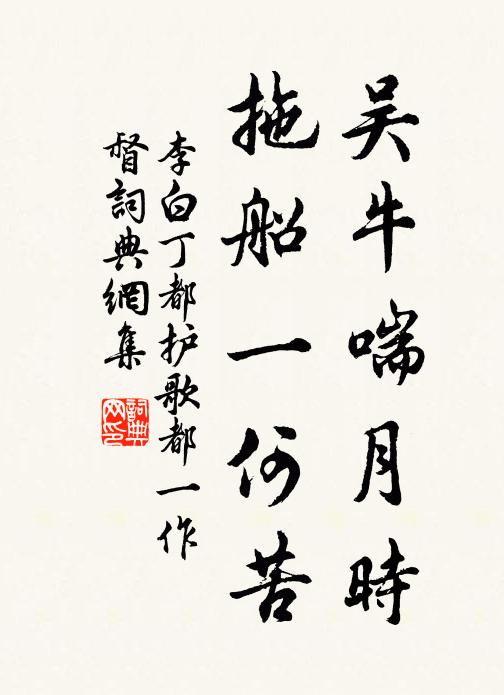 吴牛喘月時
拖船一何苦
李白丁都护歌都一作
督詞典網集
詞典网印